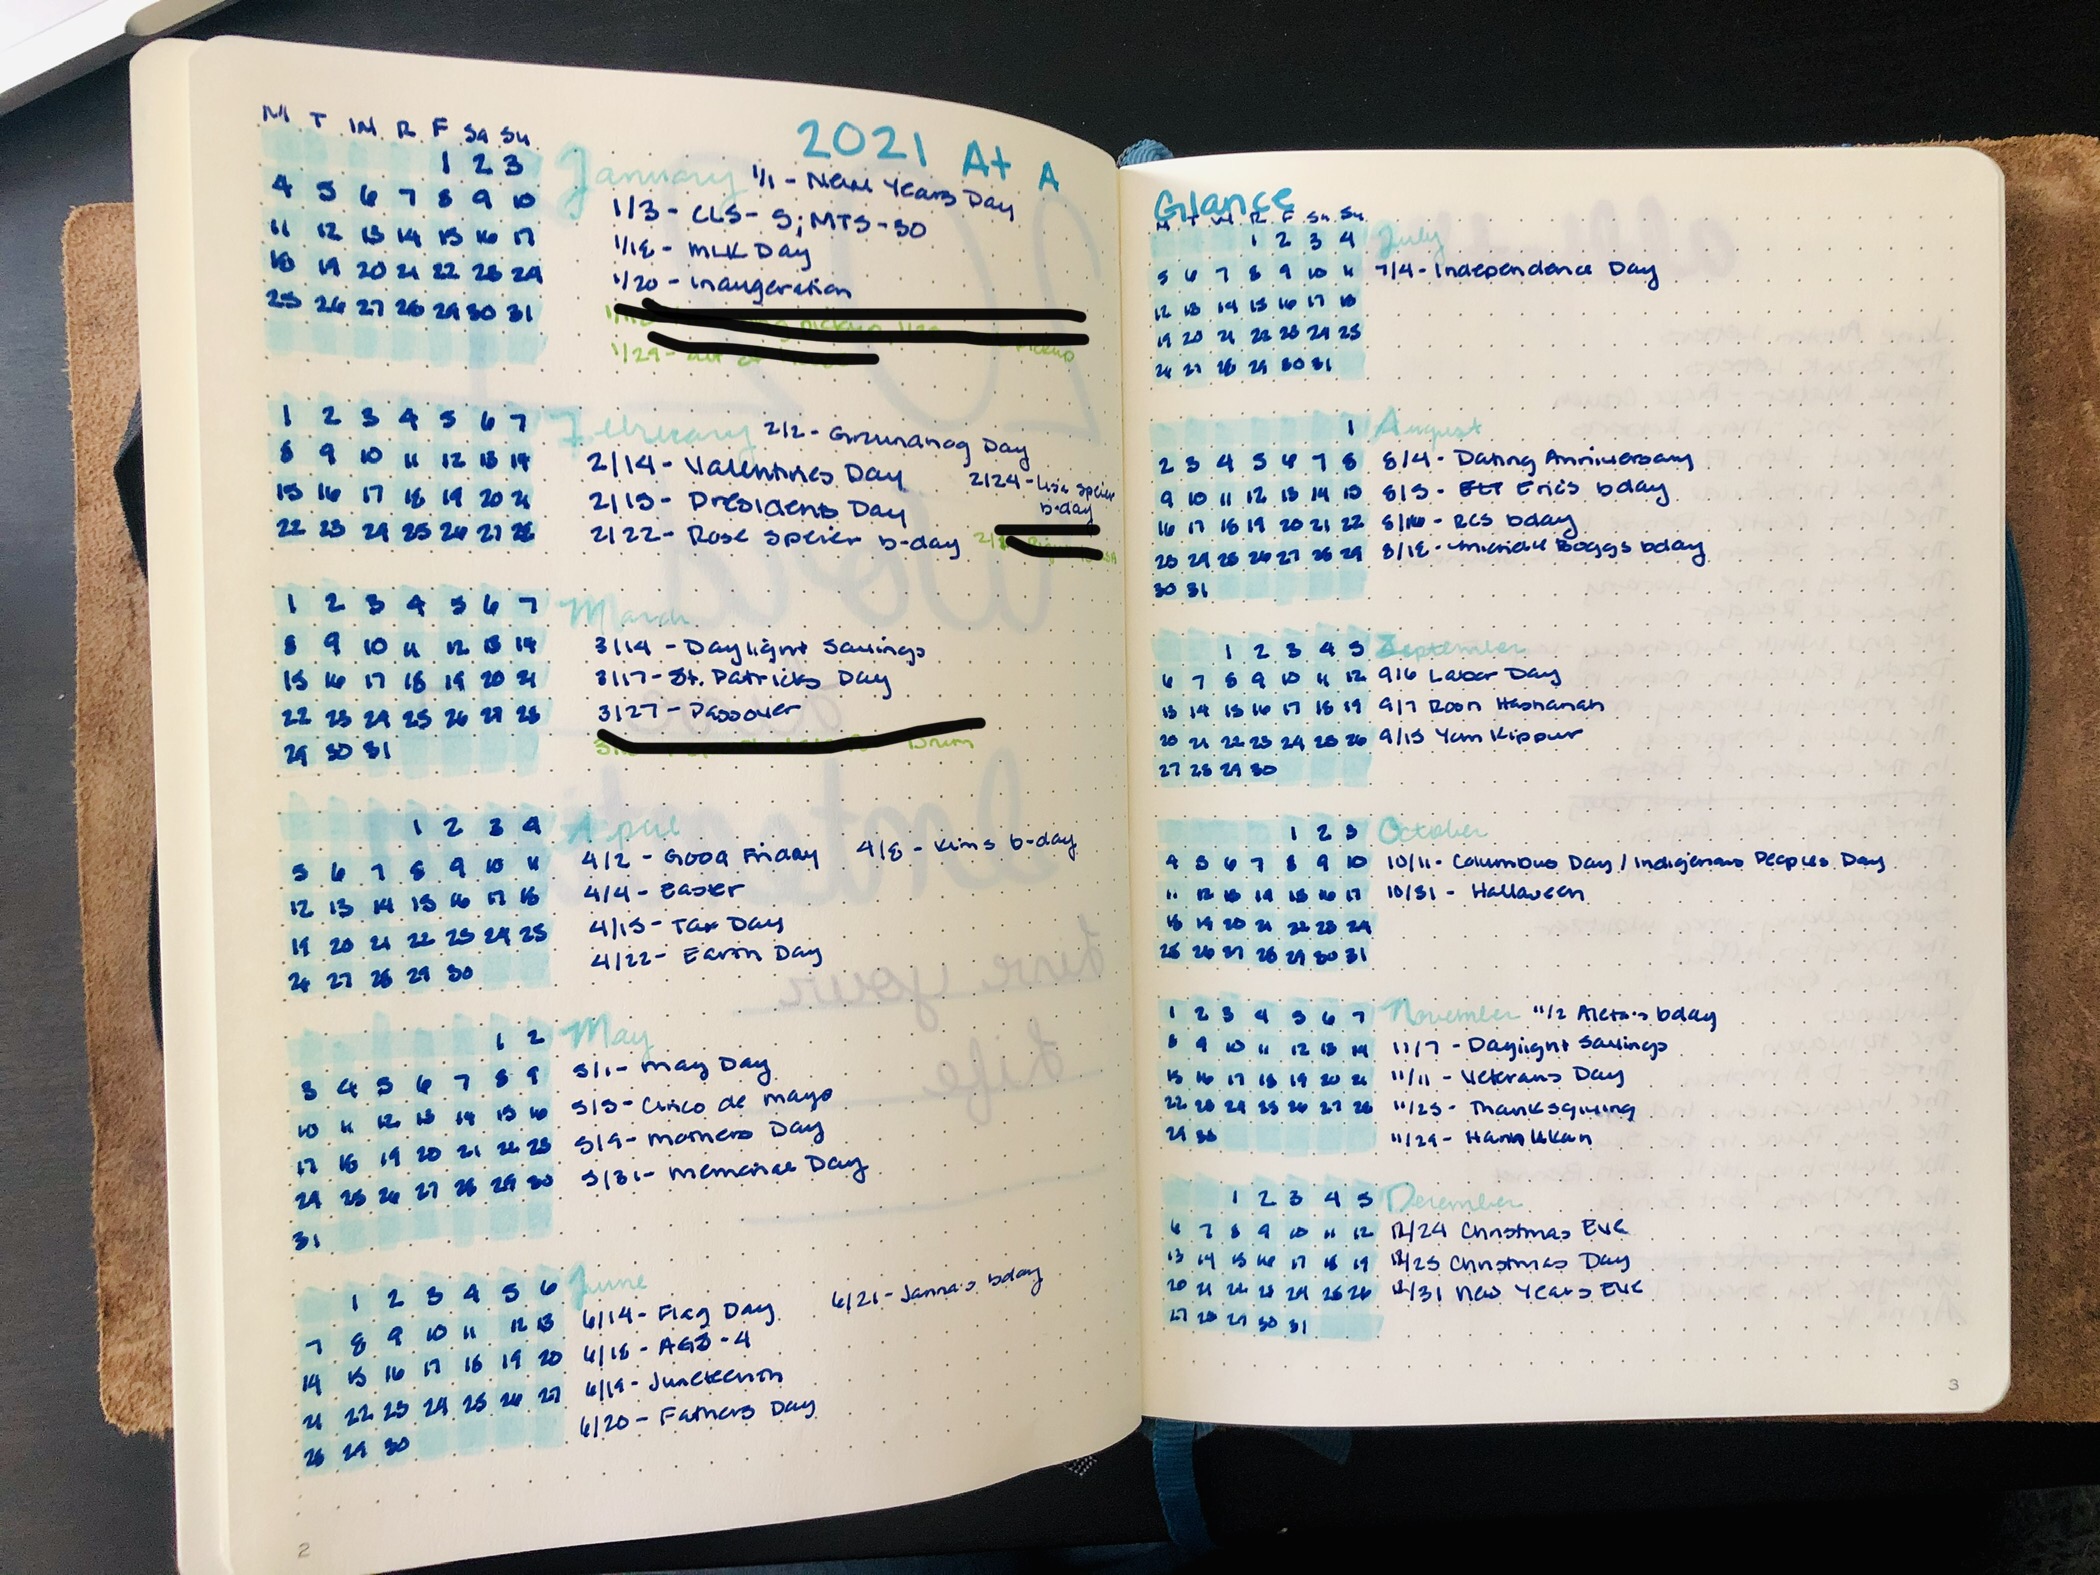 2021 At A
M T W R F Sa Su
January 1/1 - New Years Day
1 2 3
1/3 - CLS - 5; MTS - 30
4 5 6 7 8 9 10
1/18 - MLK Day
11 12 13 14 15 16 17
1/20 - Inaugeration
18 19 20 21 22 23 24
25 26 27 28 29 30 31
1/29 -
pickup
February 2/2 - Groundhog Day
1 2 3 4 5 6 7
2/14 - Valentines Day
8 9 10 11 12 13 14
2/15 - Presidents Day
2/24 - Lisa Speier
b-day
15 16 17 18 19 20 21
2/22 - Rose Speier b-day
22 23 24 25 26 27 28
March
1 2 3 4 5 6 7
3/14 - Daylight Savings
8 9 10 11 12 13 14
3/17 - St. Patricks Day
15 16 17 18 19 20 21
3/27 - Passover
22 23 24 25 26 27 28
29 30 31
April
1 2 3 4
4/2 - Good Friday 4/8 - Kim's b-day
5 6 7 8 9 10 11
4/4 - Easter
12 13 14 15 16 17 18
4/15 - Tax Day
19 20 21 22 23 24 25
4/22 - Earth Day
26 27 28 29 30
May
1 2
5/1 - May Day
3 4 5 6 7 8 9
5/5 - Cinco de mayo
10 11 12 13 14 15 16
5/9 - Mothers Day
17 18 19 20 21 22 23
5/31 - Memorial Day
24 25 26 27 28 29 30
31
June
1 2 3 4 5 6
6/14 - Flag Day 6/21 - Janna's bday
7 8 9 10 11 12 13
6/18 - AGJ - 4
14 15 16 17 18 19 20
6/19 - Juneteenth
21 22 23 24 25 26 27
6/20 - Fathers Day
28 29 30
2
Glance
M T W R F Sa Su
July
1 2 3 4
7/4 - Independence Day
5 6 7 8 9 10 11
12 13 14 15 16 17 18
19 20 21 22 23 24 25
26 27 28 29 30 31
August
1
8/4 - Dating Anniversary
2 3 4 5 6 7 8
8/5 - Eric's bday
9 10 11 12 13 14 15
8/16 - RCS bday
16 17 18 19 20 21 22
8/18 - Boggs bday
23 24 25 26 27 28 29
30 31
September
1 2 3 4 5
9/6 Labor Day
6 7 8 9 10 11 12
9/7 Rosh Hashanah
13 14 15 16 17 18 19
9/15 Yom Kippur
20 21 22 23 24 25 26
27 28 29 30
October
1 2 3
10/11 - Columbus Day / Indigenous Peoples Day
4 5 6 7 8 9 10
10/31 - Halloween
11 12 13 14 15 16 17
18 19 20 21 22 23 24
25 26 27 28 29 30 31
November 11/2 Aleta's bday
1 2 3 4 5 6 7
11/7 - Daylight Savings
8 9 10 11 12 13 14
11/11 - Veterans Day
15 16 17 18 19 20 21
11/25 - Thanksgiving
22 23 24 25 26 27 28
11/29 - Hanukkah
29 30
December
1 2 3 4 5
12/24 Christmas Eve
6 7 8 9 10 11 12
12/25 Christmas Day
13 14 15 16 17 18 19
12/31 New Years Eve
20 21 22 23 24 25 26
27 28 29 30 31
3